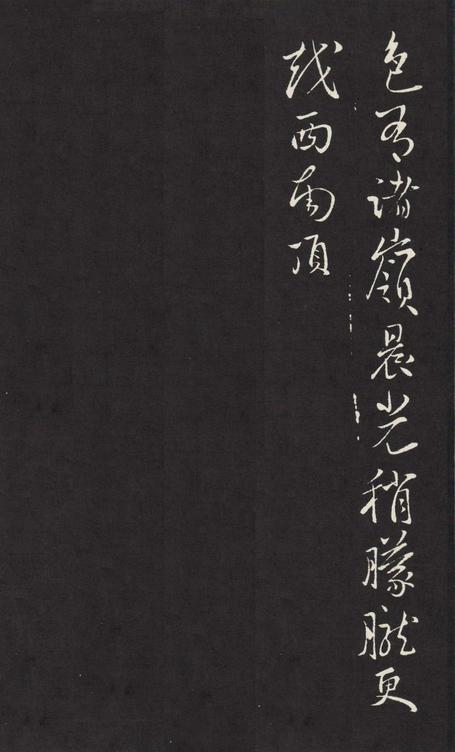 色有諸嶺晨光稍朦朧更
越西南頂